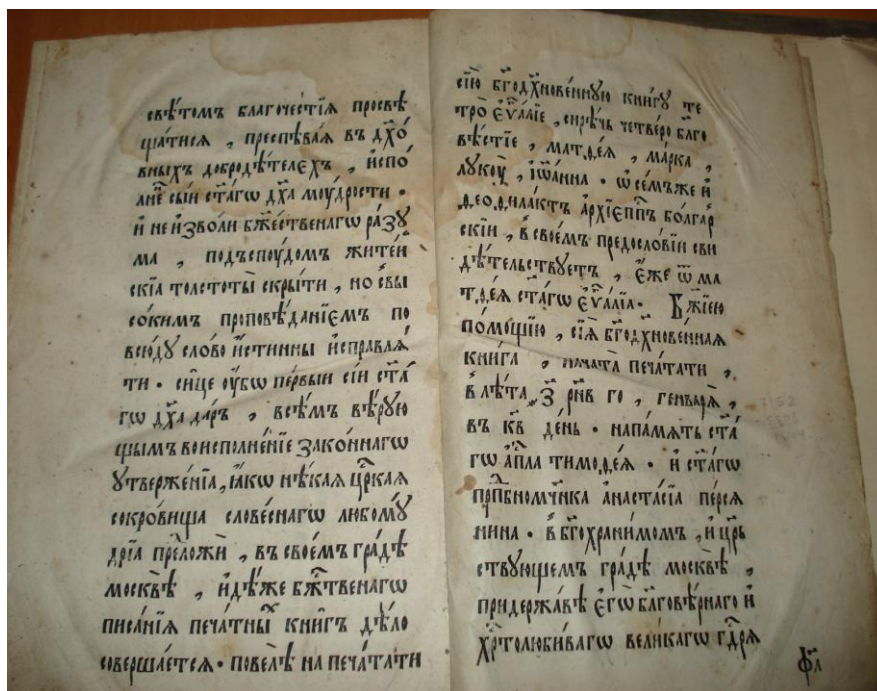 свѣ́томъ благоче́стїѧ просвѣ
ща́тисѧ , преспѣва́ѧ въ дх҃о́
вныхъ добродѣ́телєхъ , и҆спо́
лне҃ сы́и ст҃а́гѡ дх҃а моу́дрости .
и҆ не и҆зво́ли бж҃е́ственагѡ ра́зꙋ
ма , подъспоу́домъ жите́й
скїѧ толстоты̀ скры́ти , но свы
со́кимъ проповѣ́данїємъ по
всю́дꙋ сло́во и҆́стинны и҆справлѧ́
ти . си́це оу҆́бѡ пе́рвыи сі́и ст҃а́
гѡ дх҃а да́ръ , всѣ́мъ вѣ́рꙋю
щымъ воисполне́нїе зако́ннагѡ
ꙋ҆тверже́нїѧ , ꙗ҆́кѡ нѣ́каѧ цр҃каѧ
сокро́вища слове́снагѡ любомꙋ́
дрїѧ преложѝ , въ свое́мъ гра́дѣ
москвѣ̀ , и҆дѣ́же бж҃твенагѡ
писа́нїѧ печа́тны̆ кни́гъ дѣ́ло
соверша́етсѧ . повелѣ̀ на печа́тати
сїю̀ бг҃одх҃нове́ннꙋю кни́гꙋ те
тро҃ є҆ѵ҃а́лїе , си́рѣчь че́тверо бл҃го
вѣ́стїе , матѳе́ѧ , ма́рка ,
лꙋкоу̀ , і҆ѡа́нна . ѡ҆ се́мъже и҆
ѳеоѳила́ктъ а҆рхїєп҃пъ болга́р
скїи , в своє́мъ предосло́вїи сви
дѣ́тельствꙋетъ , є҆́же ѿ ма
тѳе́ѧ ст҃а́гѡ є҆ѵ҃а́лїѧ . Бж҃їею
по́мощїю , сїѧ̀ бг҃одх҃нове́ннаѧ
кни́га , нача́та печа́тати ,
в лѣ́та ҂з҃ рн҃в го , генва́рѧ ,
въ к҃в де́нь . напа́мѧть ст҃а́
гѡ а҆п҃ла тимоѳе́ѧ . и҆ ст҃а́гѡ
прп҃бномч҃нка а҆наста́сїѧ пе́рсѧ
нина . в бг҃охрани́момъ , и҆ цр҃ь
ствꙋющемъ гра́дѣ москвѣ̀ ,
придержа́вѣ є҆гѡ̀ бл҃говѣ́рнаго и҆
хр҃толюби́вагѡ вели́кагѡ гд҃рѧ
7152